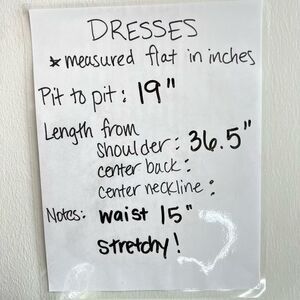 DRESSES
* measured flat in inches
Pit to pit: 19"
Length from
shoulder: 36.5"
center back:
center neckline:
Notes: waist 15"
stretchy!